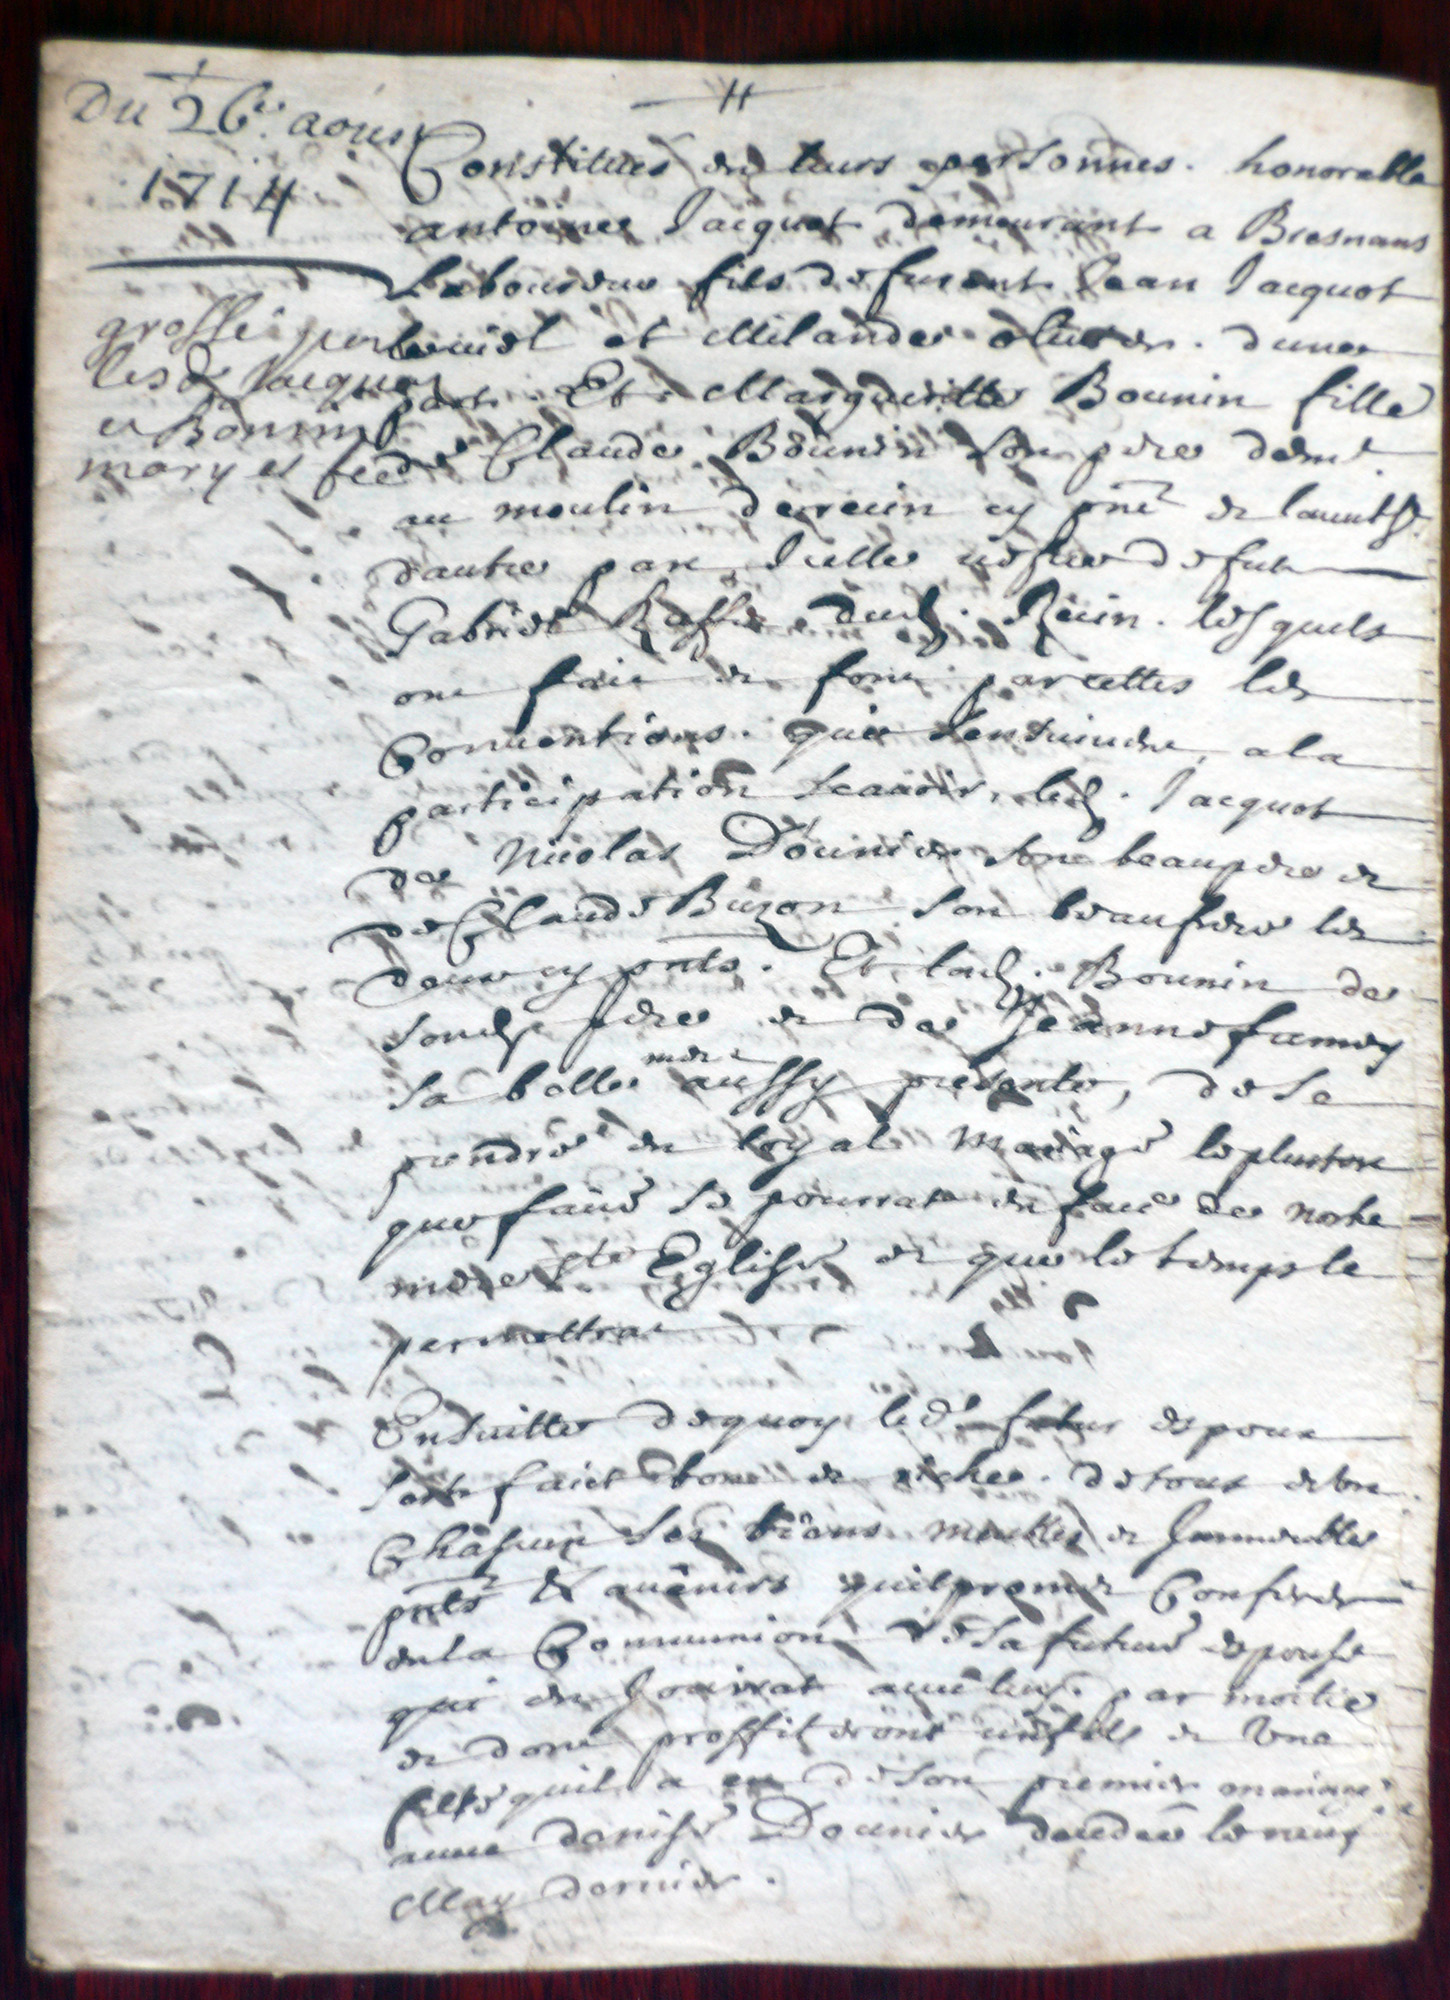 Du 26e. aoust
1714
grossé pour
les d. Jacquot
et Bounin
mary et fe
Constitués en leurs personnes. honorable
antoine Jacquot demeurant a Bresnans
laboureur fils de furent Jean Jacquot
et Milande olivier. d'une
part. Et Margueritte Bounin fille
de Claude Bounin son pere demt.
au moulin derecin cy pnt de lauuthr.
d'autre part Icelle vefve de fut
Gabriel Raffin dud. Recin. lesquels
ont fait et font par cettes les
Conventions. qui s'ensuivent, a la
participation scavoir, led. Jacquot
de Nicolas Dounier son beaupere et
de Claude Buzon son beaufrere les
deux cy pnts. Et lad. Bounin de
sond. pere et de Jeanne fumey
sa belle mere aussy presente, de se
prendre en loyal Mariage le plustost
que faire se pourrat en face de nostre
mere ste Eglise et que le temps le
permettrat
Ensuitte de quoy led. futur espoux
s'est fait bon et riche. de tous et un
Châscun ses biens meubles et Immeubles
pnts & avenirs qu'il promet Conferer
en la Communion de sa future espouse
qui en Jouirat avec luy. par moitié
et dont proffiteront un fils et une
fille qu'il a eu de son premier mariage
avec denise Dounier decedée le neuf
May dernier.